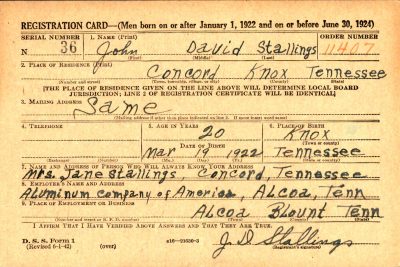 REGISTRATION CARD—(Men born on or after January 1, 1922 and on or before June 30, 1924)
SERIAL NUMBER 1. NAME (Print) ORDER NUMBER
N 36 John David Stallings 11407
(First) (Middle) (Last)
2. PLACE OF RESIDENCE (Print)
Concord Knox Tennessee
(Number and street) (Town, township, village, or city) (County) (State)
[THE PLACE OF RESIDENCE GIVEN ON THE LINE ABOVE WILL DETERMINE LOCAL BOARD
JURISDICTION; LINE 2 OF REGISTRATION CERTIFICATE WILL BE IDENTICAL]
3. MAILING ADDRESS
Same
(Mailing address if other than place indicated on line 2. If same insert word same)
4. TELEPHONE 5. AGE IN YEARS 6. PLACE OF BIRTH
20 Knox
DATE OF BIRTH (Town or county)
Mar 19 1922 Tennessee
(Exchange) (Number) (Mo.) (Day) (Yr.) (State or country)
7. NAME AND ADDRESS OF PERSON WHO WILL ALWAYS KNOW YOUR ADDRESS
Mrs. Jane Stallings, Concord, Tennessee
8. EMPLOYER'S NAME AND ADDRESS
Aluminum Company of America, Alcoa, Tenn
9. PLACE OF EMPLOYMENT OR BUSINESS
Alcoa Blount Tenn
(Number and street or R. F. D. number) (Town) (County) (State)
I AFFIRM THAT I HAVE VERIFIED ABOVE ANSWERS AND THAT THEY ARE TRUE.
D. S. S. Form 1
(Revised 6-1-42) (over) J D Stallings
(Registrant's signature)